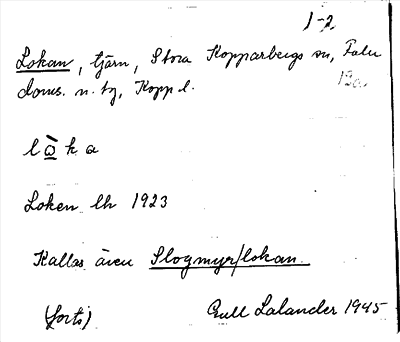 1-2
Lokan, tjärn, Stora Kopparbergs sn, Falu
doms. n. tg, Kopp l. 12a
l ò̲ k a
Loken lk 1923
Kallas även Slogmyr/lokan.
(forts) Gull Lalander 1945